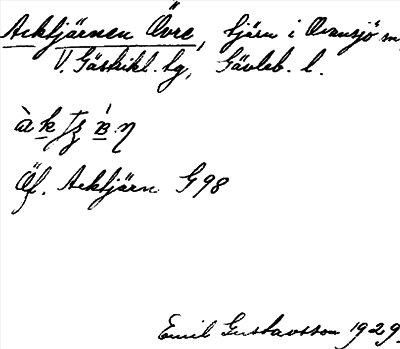 Acktjärnen Övre, tjärn i Ovansjö sn
V. Gästrikl. tg, Gävleb. l.
Öf. Acktjärn G98
Emil Gustavsson 1929.